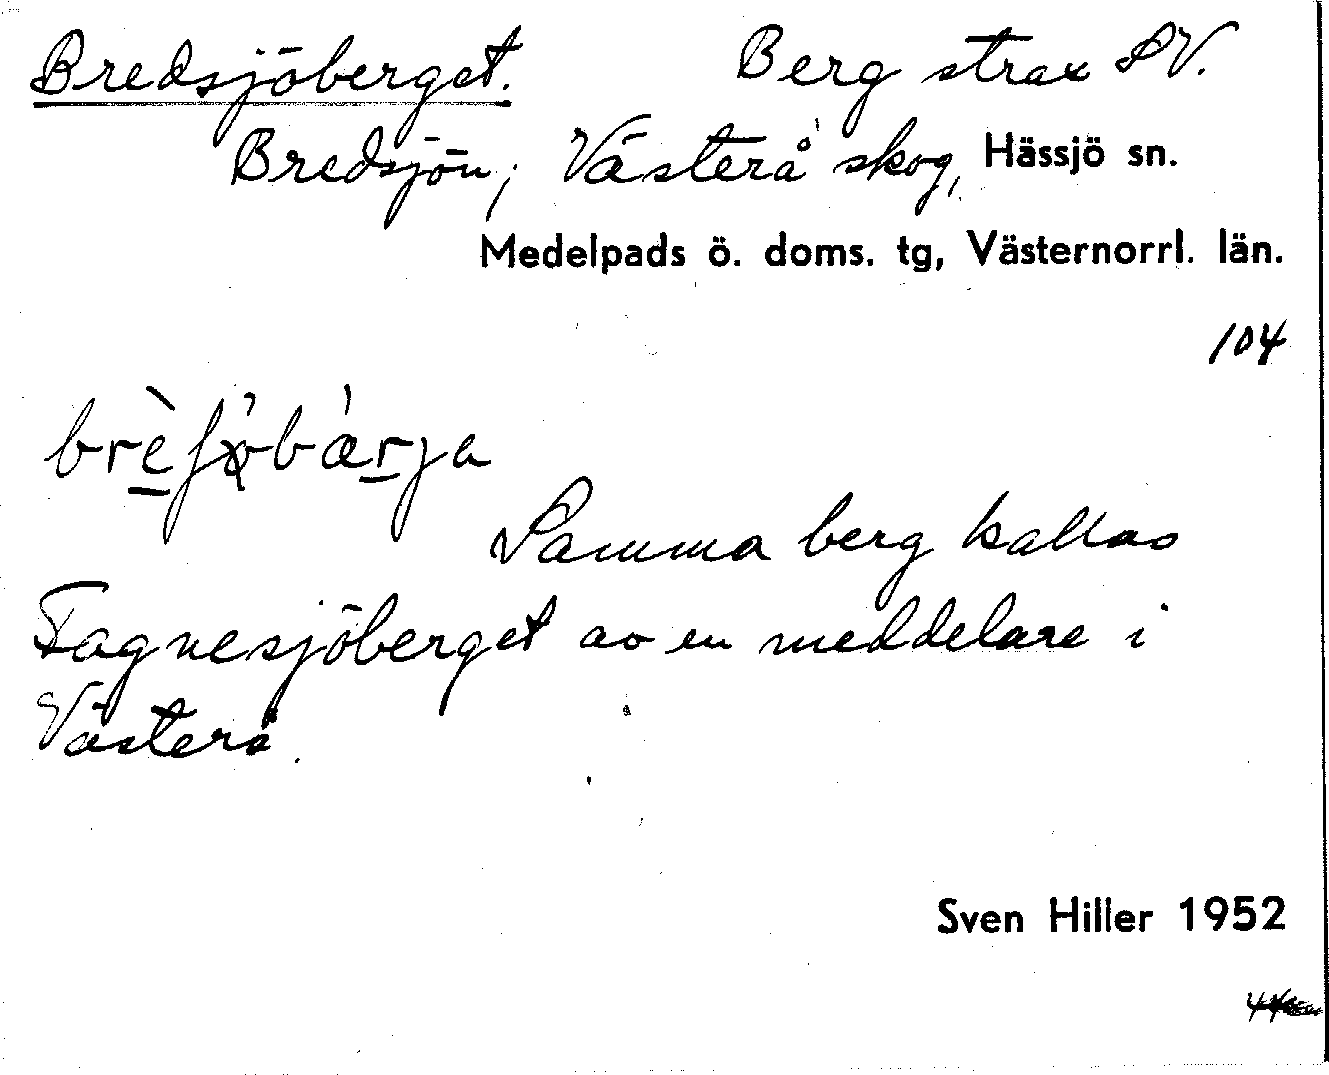 Bredsjöberget. Berg strax SV.
Bredsjön; Västerå skog, Hässjö sn.
Medelpads ö. doms. tg, Västernorrl. län.
104
Samma berg kallas
Fagnesjöberget av en meddelare i
Västerå.
Sven Hiller 1952